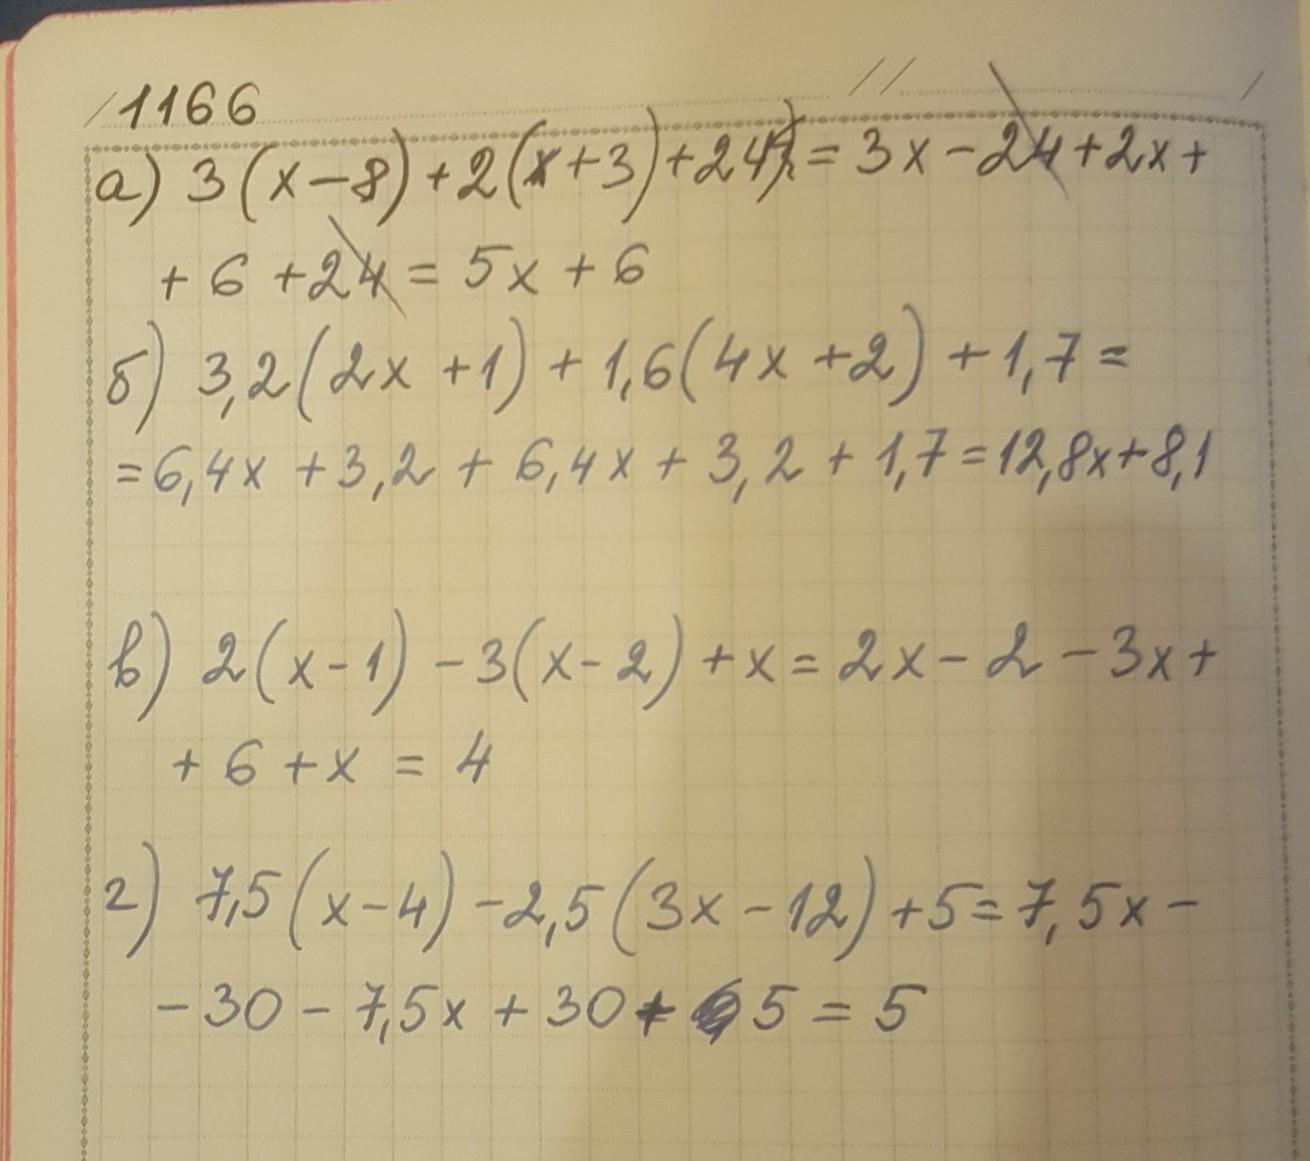 1166
а) 3(x-8)+2(x+3)+24=3x-24+2x+
+6+24=5x+6
б) 3,2(2x+1)+1,6(4x+2)+1,7=
=6,4x+3,2+6,4x+3,2+1,7=12,8x+8,1
в) 2(x-1)-3(x-2)+x=2x-2-3x+
+6+x=4
г) 7,5(x-4)-2,5(3x-12)+5=7,5x-
-30-7,5x+30+5=5